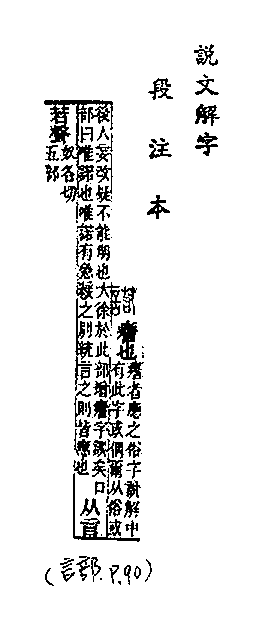 說文解字
段注本
諾 譍也 譍者應之俗字說解中
有此字或偶爾从俗或
後人妄改疑不能明也大徐於此部增譍字誤矣口
部曰唯諾也唯諾有急緩之別統言之則皆譍也
从言
若聲 奴各切
五部
(言部.P.90)